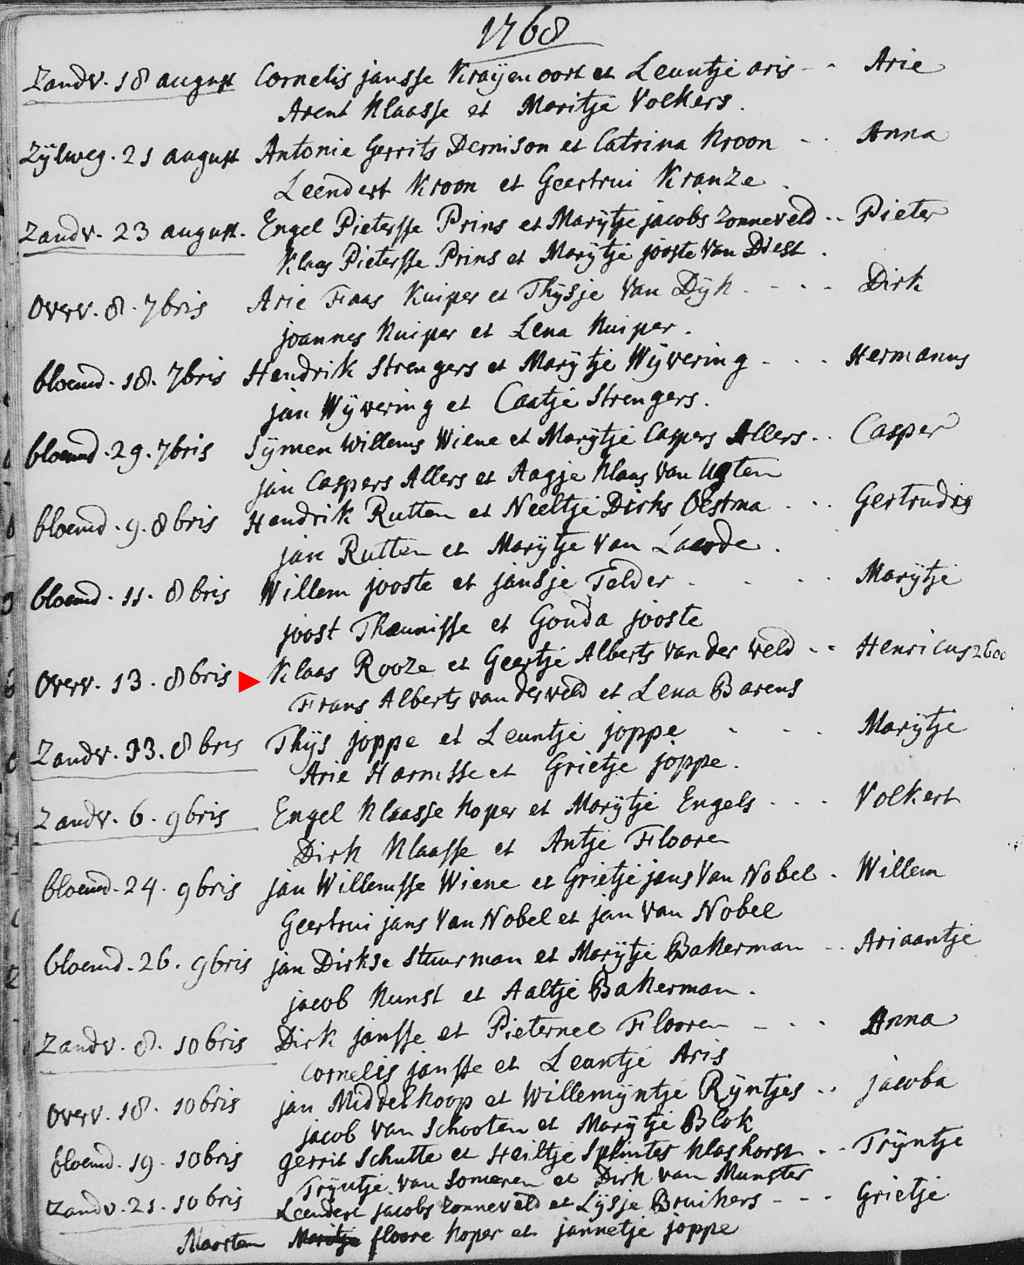 1768
Zandv. 18 august Cornelis jansse Kraijenoort et Leuntje aris - - Arie
Arent Klaasse et Maritje Volkers.
Zijlweg. 21 august Antonie Gerrits Dernison et Catrina Kroon - - Anna
Leendert Kroon et Geertrui Kranze.
Zandv. 23 august. Engel Pietersse Prins et Marijtje jacobs Zonneveld - - Pieter
Klaas Pietersse Prins et Marijtje jooste Van Diest.
Overv. 8. 7bris Arie Faas Kuiper et Thijsje Van Dijk - - - - Dirk
joannes Kuiper et Lena Kuiper.
bloemd. 18. 7bris Hendrik Strengers et Marijtje Wijvering - - - Hermanus
jan Wijvering et Caatje Strengers.
bloemd. 29. 7bris Sijmen Willems Wiene et Marijtje Caspers Allers - - Casper
jan Caspers Allers et Aagje Klaas Van Ugten
bloemd. 9. 8bris Hendrik Rutten et Neeltje Dirks Oestma - - - Gertrudis
jan Rutten et Marijtje Van Laarde.
bloemd. 11. 8bris Willem jooste et jansje Telder - - - - Marijtje
joost Theunisse et Gouda jooste
Overv. 13. 8bris Klaas Rooze et Geertje Alberts van der weld - - Henricus 2600
Frans Alberts van der veld et Lena Barens
Zandv. 33. 8bris Thijs joppe et Leuntje joppe - - - Marijtje
Arie Harmsse et Grietje joppe.
Zandv. 6. 9bris Engel Klaasse Koper et Marijtje Engels - - - Volkert
Dirk Klaasse et Antje Flooren
bloemd. 24. 9bris jan Willemsse Wiene et Grietje jans Van Nobel - Willem
Geertrui jans Van Nobel et jan Van Nobel
bloemd. 26. 9bris jan Dirkse Stuurman et Marijtje Bakerman - - Ariaantje
jacob Kunst et Aaltje Bakerman.
Zandv. 8. 10bris Dirk jansse et Pieternel Flooren - - - Anna
Cornelis jansse et Leuntje Aris
Overv. 18. 10bris jan Middelkoop et Willemijntje Rijntjes - - jacoba
jacob Van Schooten et Marijtje Blok
bloemd. 19. 10bris gerrit Schutte et Heiltje Splinter Klashorst - - Trijntje
Trijntje van Someren et Dirk van Munster
Zandv. 21. 10bris Leendert jacobs Zonneveld et Lijsje Bruikers - - - Grietje
Maarten floore Koper et jannetje joppe